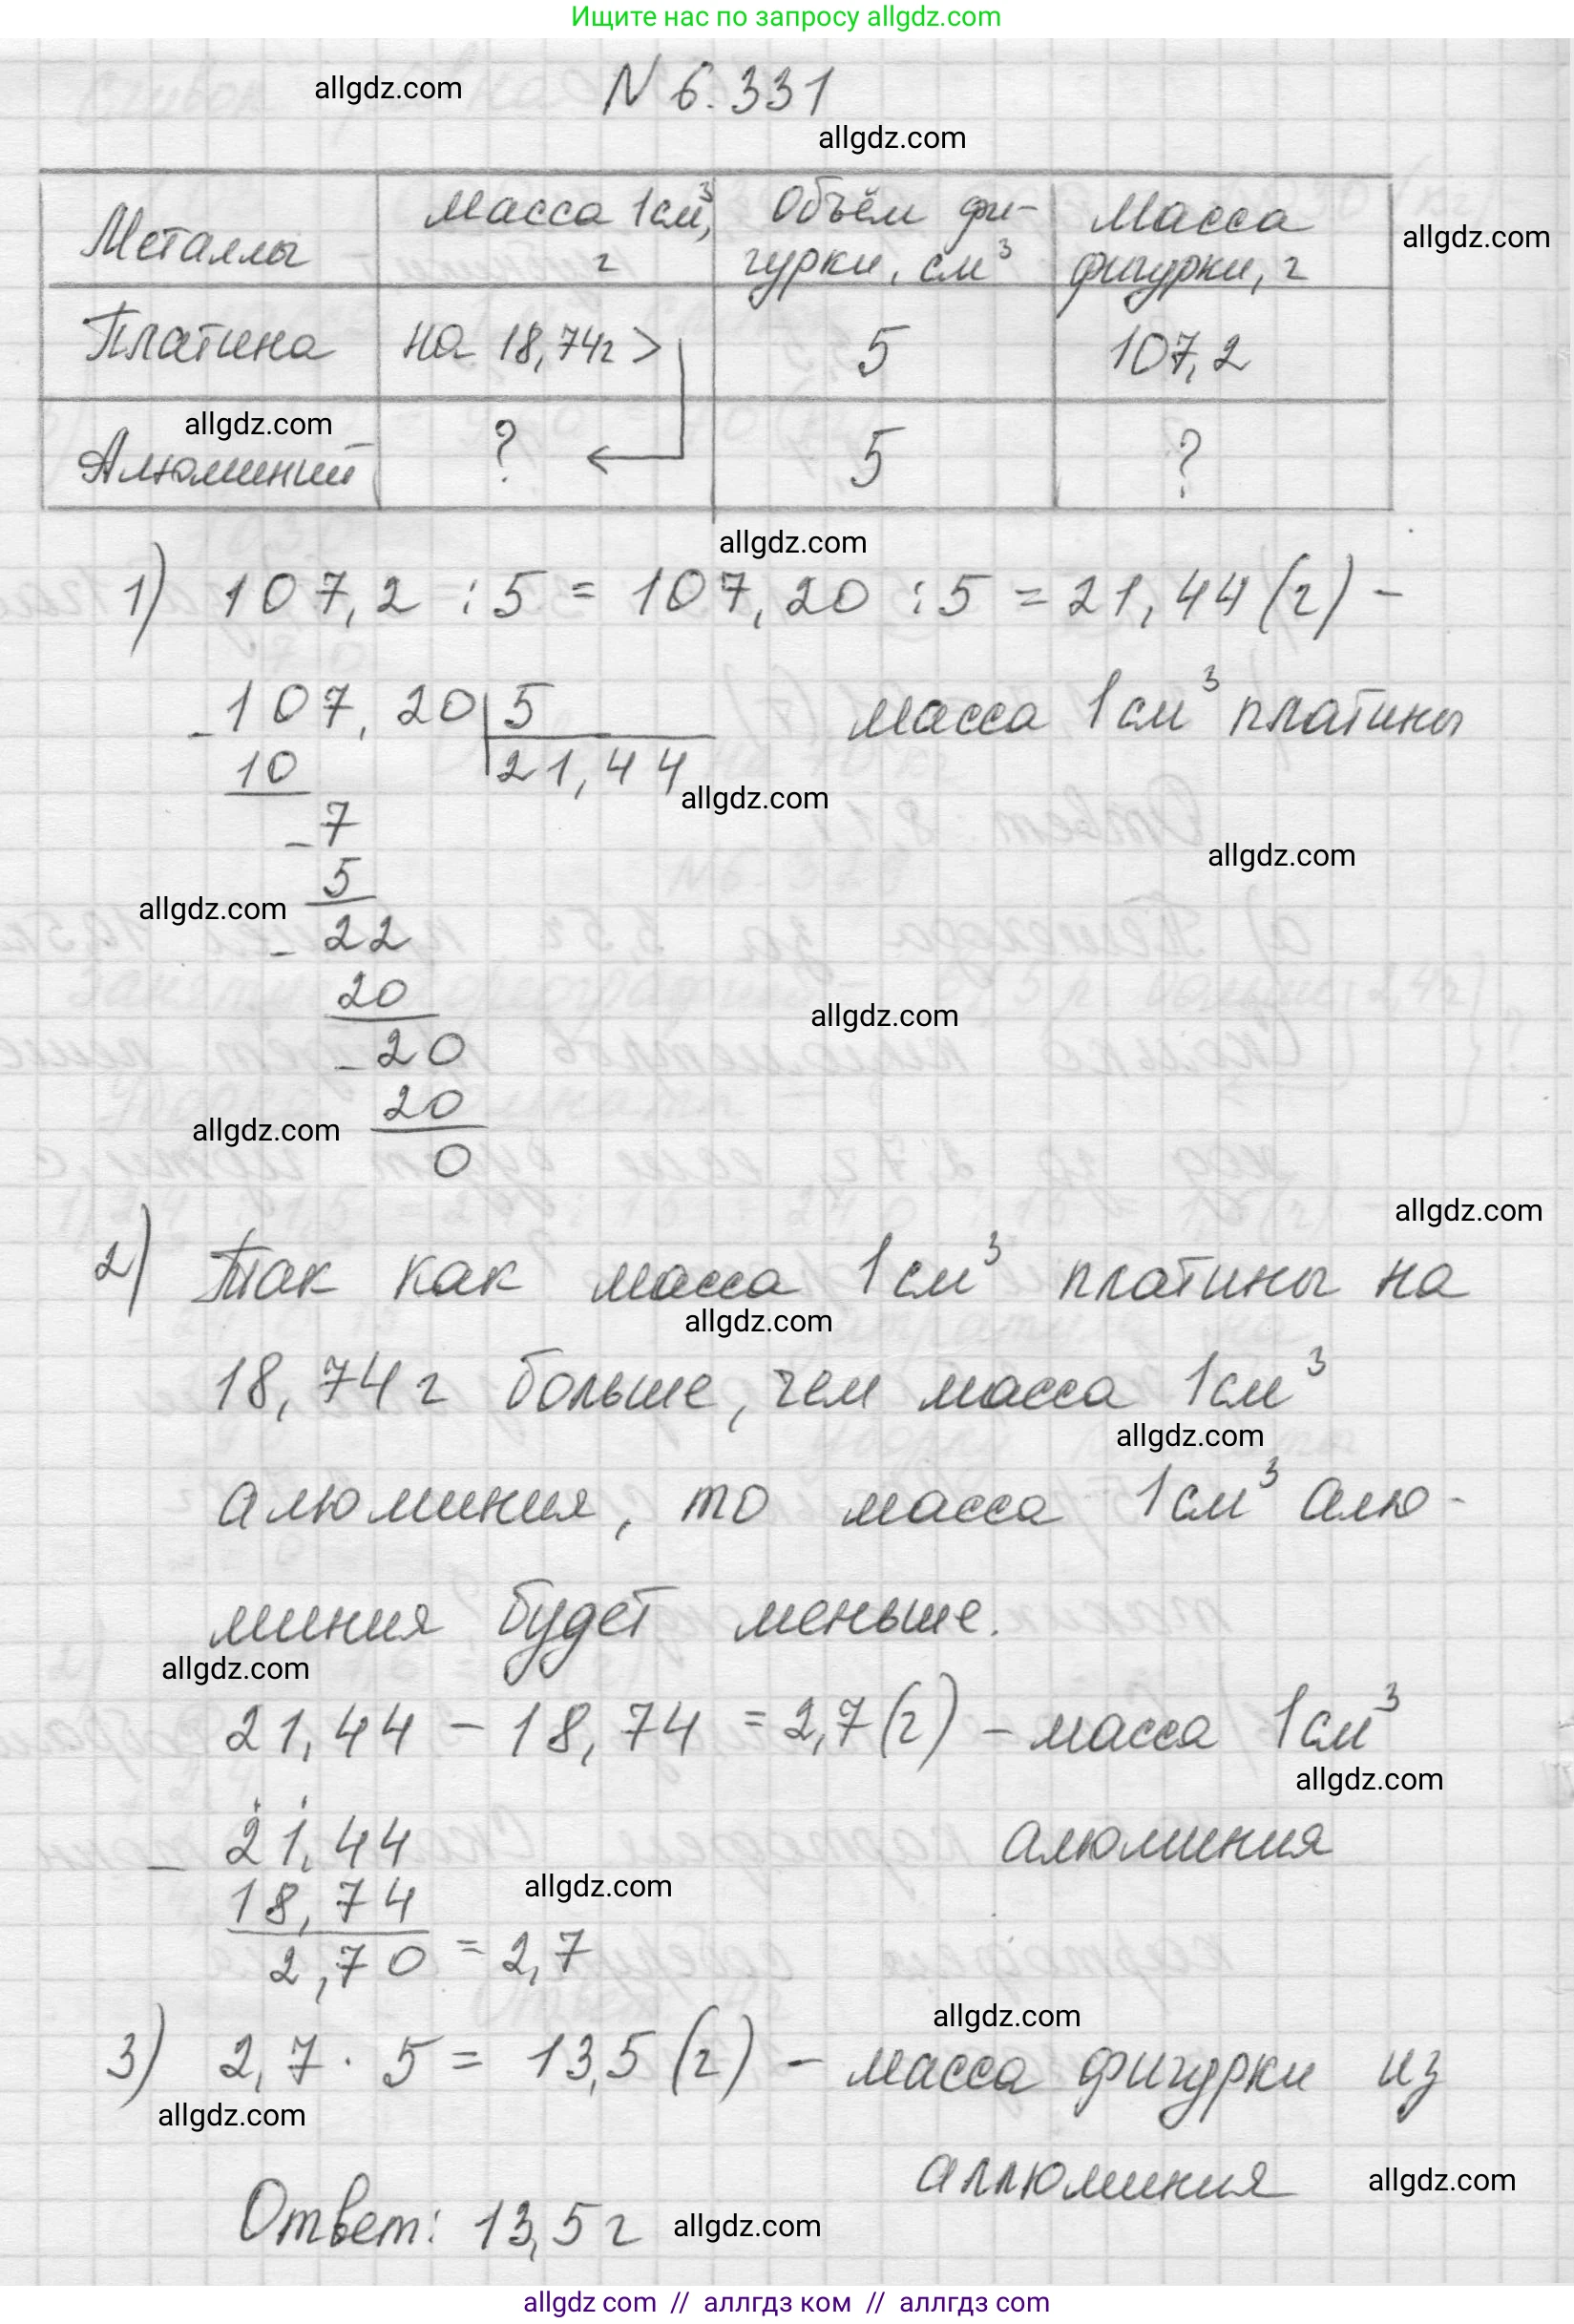 Ищите нас по запросу allgdz.com
allgdz.com
N 6.331
allgdz.com
Металлы
масса 1см³,
г
Объём фи-
гурки, см³
Масса
фигурки, г
allgdz.com
Платина
на 18,74г >
5
107,2
allgdz.com
Алюминий
?
5
?
allgdz.com
1) 107,2 : 5 = 107,20 : 5 = 21,44 (г) -
масса 1см³ платины
- 107,20 | 5
10
21,44
allgdz.com
- 7
allgdz.com
5
allgdz.com
- 22
20
allgdz.com
- 20
20
allgdz.com
0
allgdz.com
2) Так как масса 1см³ платины на
allgdz.com
18,74 г больше, чем масса 1см³
allgdz.com
алюминия, то масса 1см³ алю-
миния будет меньше.
allgdz.com
21,44 - 18,74 = 2,7 (г) - масса 1см³
allgdz.com
алюминия
- 21,44
18,74
allgdz.com
2,70 = 2,7
allgdz.com
3) 2,7 · 5 = 13,5 (г) - масса фигурки из
allgdz.com
аллюминия
allgdz.com
Ответ: 13,5 г
allgdz.com
allgdz com // аллгдз ком // аллгдз com